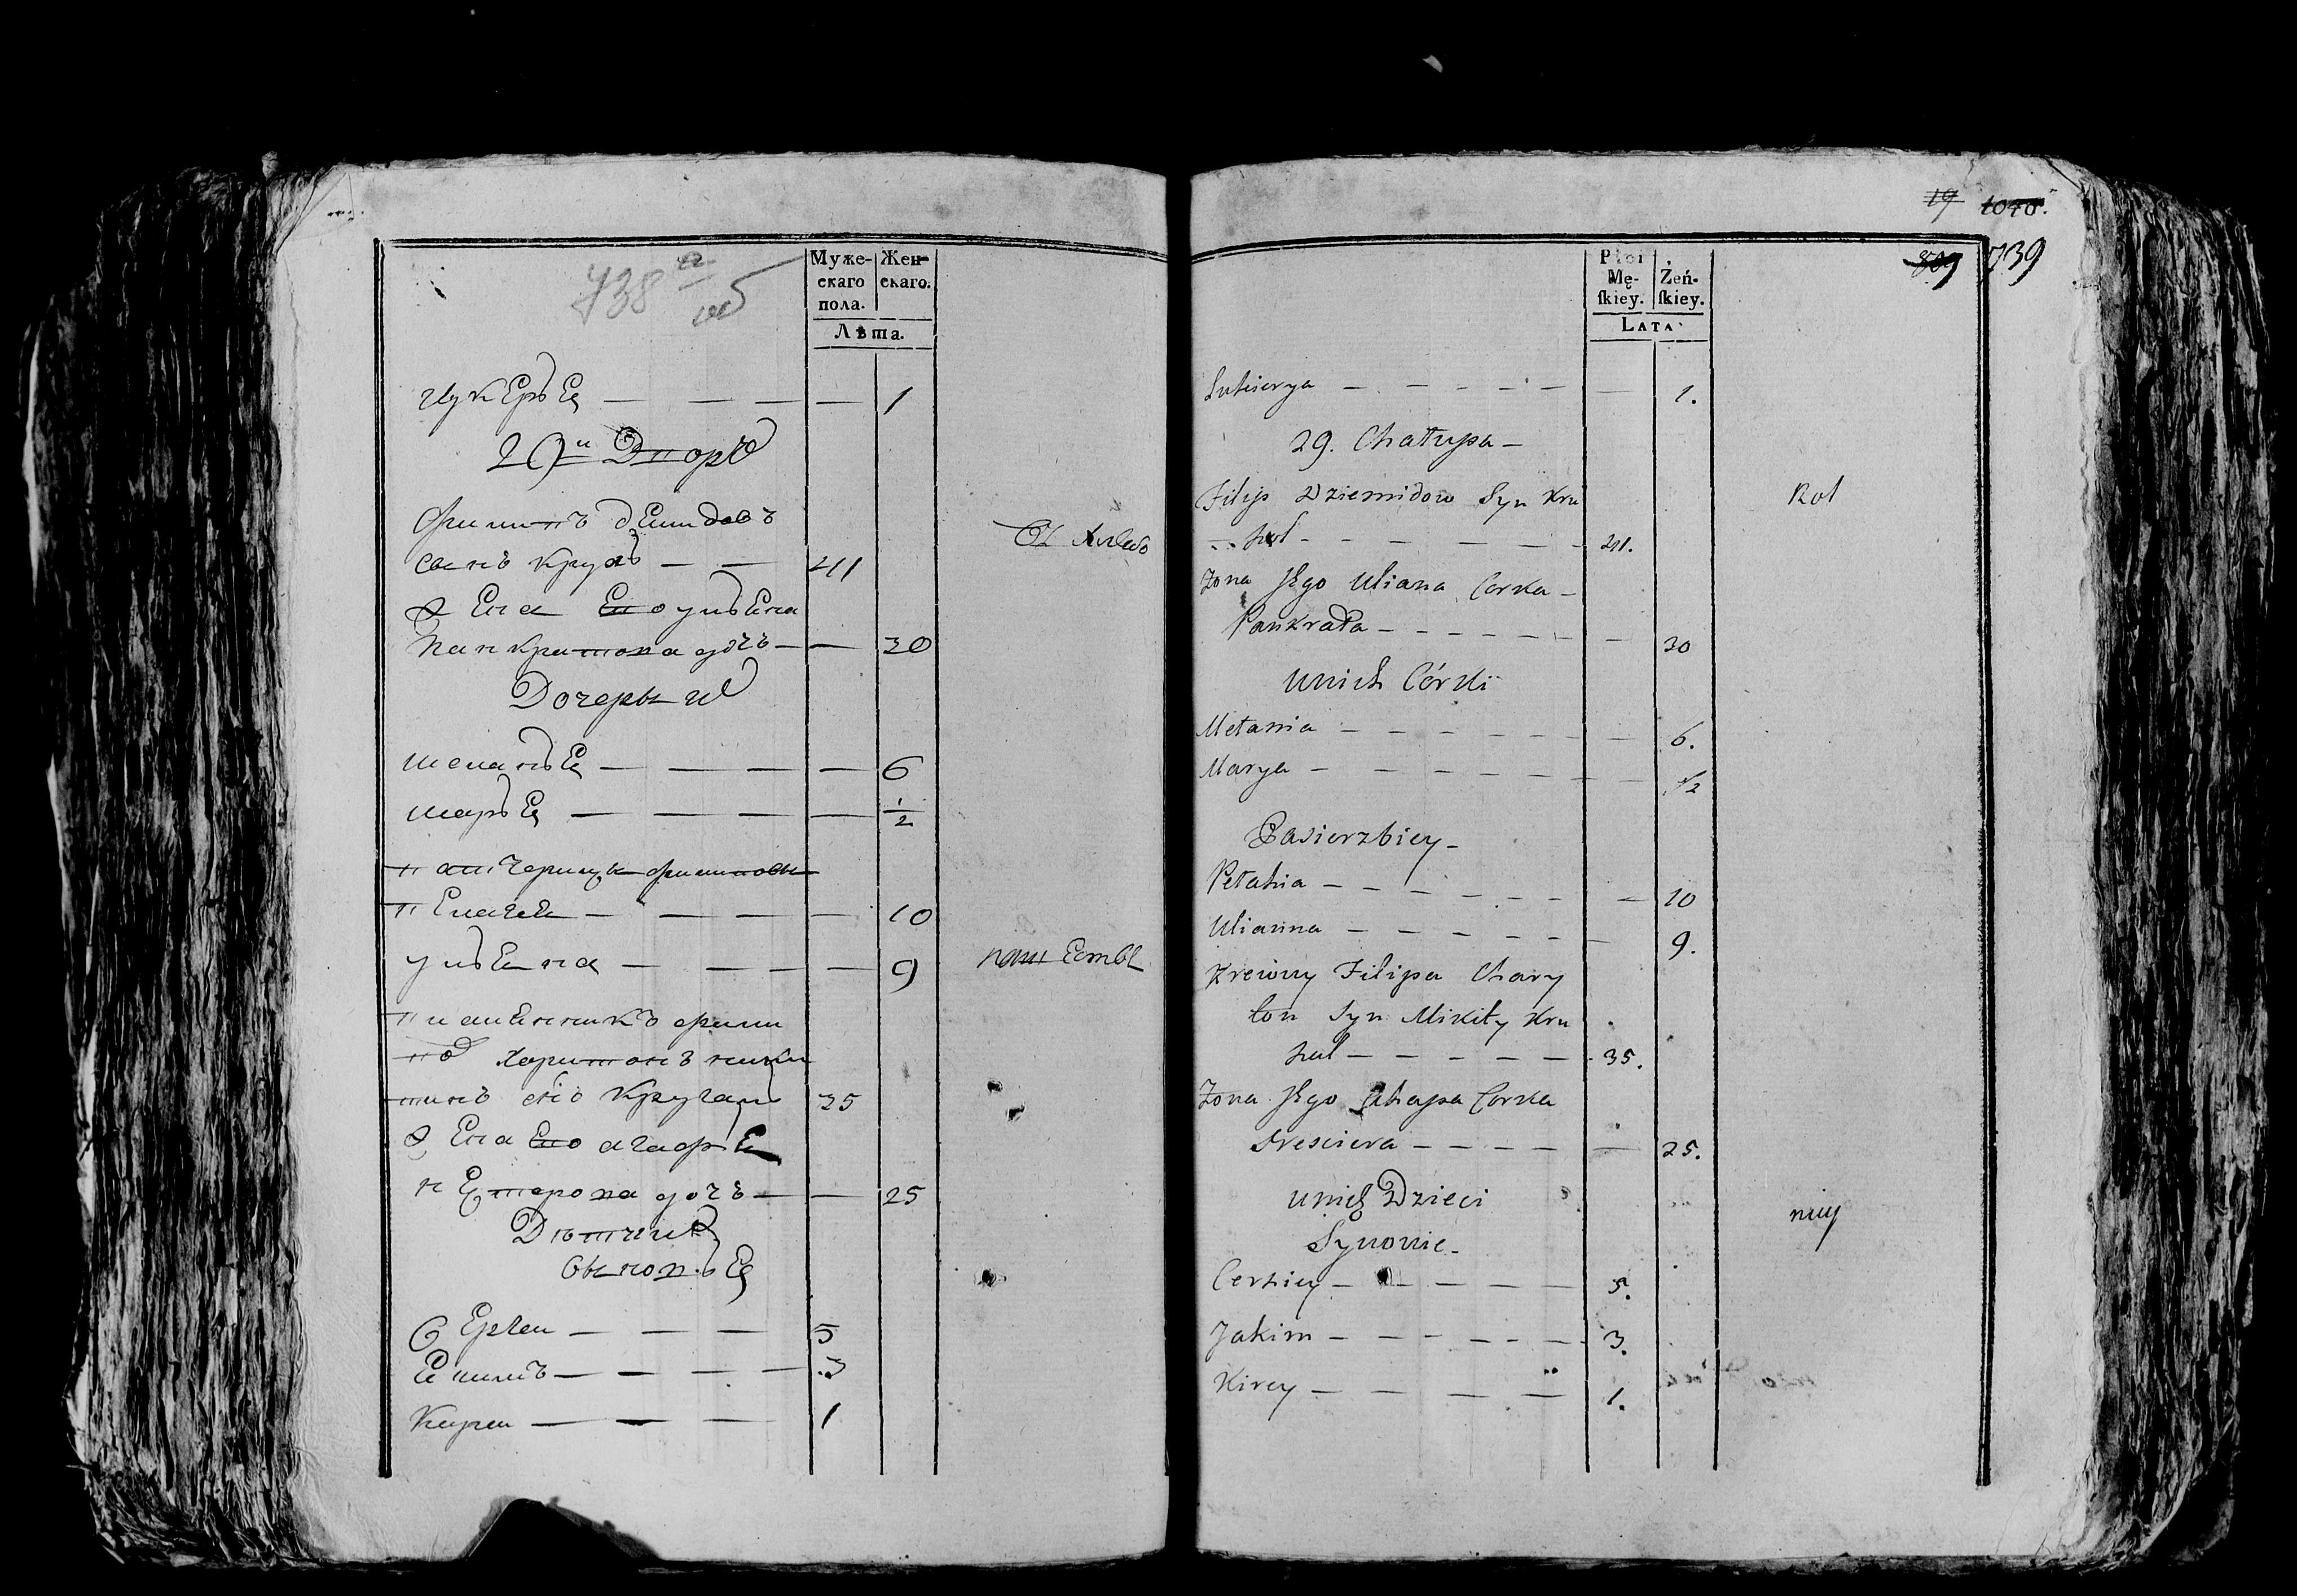 738 а
об
Муже-
скаго
пола.
Жен-
скаго.
Лѣта.
лукерья — — — — 1
29й Дворъ
Филипъ демидовъ
сынъ круглъ — — 41
жена Его ульяна
панкратова дочь — — 30
Дочеры их
меланья — — — — 6
марья — — — — 1/2
падчерицы филиповы
пелагея — — — — 10
ульяна — — — — 9
племянникъ фили
пов харитонъ ники
тинъ снъ Кругалъ 35
жена Его агафья
нестерова дочь — — 25
Дѣти их
Сыновья
Сергей — — — 5
Еким — — — — 3
Кирей — — — 1
19 1048.
739
Płci
Mę-
ſkiey.
Żeń-
ſkiey.
Lata
Lukierya — — — — — — 1.
29. Chałupa —
Filip Dziemidow Syn Kru
hol — — — — — — 41.
Żona Jego Uliana Corka —
Pankrata — — — — — — 30
Unich Córki
Mełania — — — — — — 6.
Marya — — — — — — 1/2
Pasierzbicy —
Pełahia — — — — — — 10
Ulianna — — — — — — 9.
Krewny Filipa Chary
ton Syn Mikity Kru
hul — — — — — 35.
Żona Jego Ahapa Corka
— — — — — 25.
Unich Dzieci
Synowie —
Cerhiey — — — — — 5.
Jakim — — — — — — 3.
Kirey — — — — 1.